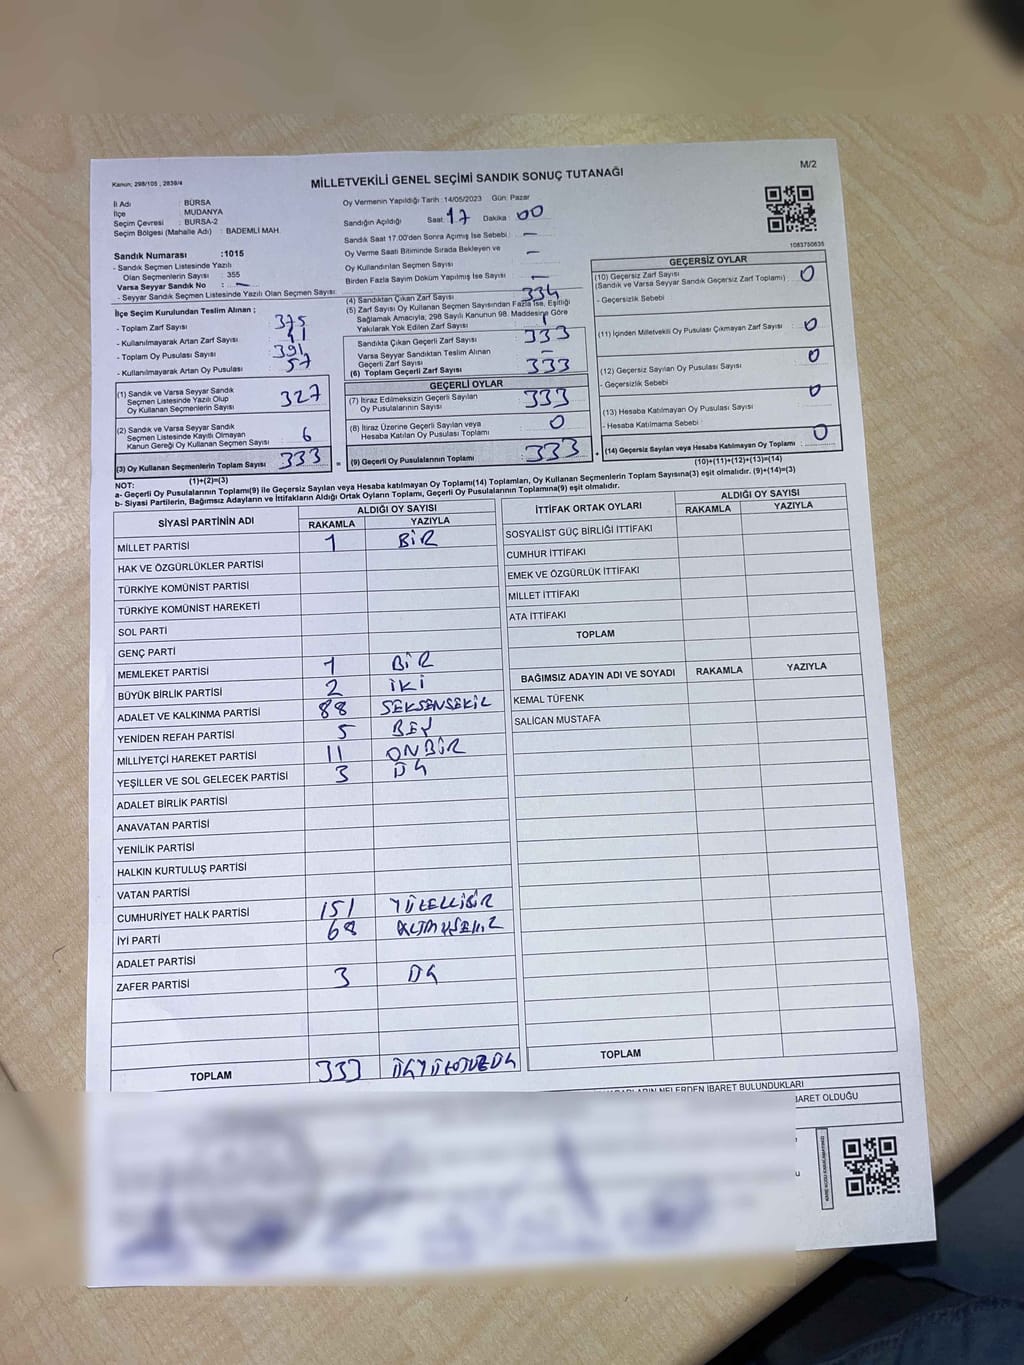 Kanun; 298/105 , 2839/4
MİLLETVEKİLİ GENEL SEÇİMİ SANDIK SONUÇ TUTANAĞI
M/2
İl Adı : BURSA
İlçe : MUDANYA
Seçim Çevresi : BURSA-2
Seçim Bölgesi (Mahalle Adı) : BADEMLİ MAH.
Sandık Numarası :1015
- Sandık Seçmen Listesinde Yazılı
Olan Seçmenlerin Sayısı : 355
Varsa Seyyar Sandık No : -
- Seyyar Sandık Seçmen Listesinde Yazılı Olan Seçmen Sayısı:
Oy Vermenin Yapıldığı Tarih :14/05/2023 Gün: Pazar
Sandığın Açıldığı Saat: 17 Dakika : 00
Sandık Saat 17.00'den Sonra Açımış İse Sebebi : -
Oy Verme Saati Bitiminde Sırada Bekleyen ve
Oy Kullandırılan Seçmen Sayısı : -
Birden Fazla Sayım Döküm Yapılmış İse Sayısı : -
1083750635
İlçe Seçim Kurulundan Teslim Alınan ;
- Toplam Zarf Sayısı : 375
- Kullanılmayarak Artan Zarf Sayısı : 41
- Toplam Oy Pusulası Sayısı : 391
- Kullanılmayarak Artan Oy Pusulası : 57
(1) Sandık ve Varsa Seyyar Sandık
Seçmen Listesinde Yazılı Olup
Oy Kullanan Seçmenlerin Sayısı : 327
(2) Sandık ve Varsa Seyyar Sandık
Seçmen Listesinde Kayıtlı Olmayan
Kanun Gereği Oy Kullanan Seçmen Sayısı : 6
(3) Oy Kullanan Seçmenlerin Toplam Sayısı : 333
(1)+(2)=(3)
(4) Sandıktan Çıkan Zarf Sayısı : 334
(5) Zarf Sayısı Oy Kullanan Seçmen Sayısından Fazla İse, Eşitliği
Sağlamak Amacıyla; 298 Sayılı Kanunun 98. Maddesine Göre
Yakılarak Yok Edilen Zarf Sayısı : 1
Sandıkta Çıkan Geçerli Zarf Sayısı : 333
Varsa Seyyar Sandıktan Teslim Alınan
Geçerli Zarf Sayısı : -
(6) Toplam Geçerli Zarf Sayısı : 333
GEÇERLİ OYLAR
(7) İtiraz Edilmeksizin Geçerli Sayılan
Oy Pusulalarının Sayısı : 333
(8) İtiraz Üzerine Geçerli Sayılan veya
Hesaba Katılan Oy Pusulası Toplamı : 0
= (9) Geçerli Oy Pusulalarının Toplamı : 333
GEÇERSİZ OYLAR
(10) Geçersiz Zarf Sayısı
(Sandık ve Varsa Seyyar Sandık Geçersiz Zarf Toplamı) : 0
- Geçersizlik Sebebi
(11) İçinden Milletvekili Oy Pusulası Çıkmayan Zarf Sayısı : 0
(12) Geçersiz Sayılan Oy Pusulası Sayısı : 0
- Geçersizlik Sebebi
(13) Hesaba Katılmayan Oy Pusulası Sayısı : 0
- Hesaba Katılmama Sebebi :
+ (14) Geçersiz Sayılan veya Hesaba Katılmayan Oy Toplamı : 0
(10)+(11)+(12)+(13)=(14)
NOT:
a- Geçerli Oy Pusulalarının Toplamı(9) ile Geçersiz Sayılan veya Hesaba Katılmayan Oy Toplamı(14) Toplamları, Oy Kullanan Seçmenlerin Toplam Sayısına(3) eşit olmalıdır. (9)+(14)=(3)
b- Siyasi Partilerin, Bağımsız Adayların ve İttifakların Aldığı Ortak Oyların Toplamı, Geçerli Oy Pusulalarının Toplamına(9) eşit olmalıdır.
SİYASİ PARTİNİN ADI ALDIĞI OY SAYISI
RAKAMLA YAZIYLA
MİLLET PARTİSİ 1 BİR
HAK VE ÖZGÜRLÜKLER PARTİSİ
TÜRKİYE KOMÜNİST PARTİSİ
TÜRKİYE KOMÜNİST HAREKETİ
SOL PARTİ
GENÇ PARTİ
MEMLEKET PARTİSİ 1 BİR
BÜYÜK BİRLİK PARTİSİ 2 İKİ
ADALET VE KALKINMA PARTİSİ 88 SEKSENSEKİZ
YENİDEN REFAH PARTİSİ 5 BEŞ
MİLLİYETÇİ HAREKET PARTİSİ 11 ONBİR
YEŞİLLER VE SOL GELECEK PARTİSİ 3 ÜÇ
ADALET BİRLİK PARTİSİ
ANAVATAN PARTİSİ
YENİLİK PARTİSİ
HALKIN KURTULUŞ PARTİSİ
VATAN PARTİSİ
CUMHURİYET HALK PARTİSİ 151 YÜZELLİBİR
İYİ PARTİ 68 ALTMIŞSEKİZ
ADALET PARTİSİ
ZAFER PARTİSİ 3 ÜÇ
TOPLAM 333 ÜÇYÜZOTUZÜÇ
İTTİFAK ORTAK OYLARI ALDIĞI OY SAYISI
RAKAMLA YAZIYLA
SOSYALİST GÜÇ BİRLİĞİ İTTİFAKI
CUMHUR İTTİFAKI
EMEK VE ÖZGÜRLÜK İTTİFAKI
MİLLET İTTİFAKI
ATA İTTİFAKI
TOPLAM
BAĞIMSIZ ADAYIN ADI VE SOYADI RAKAMLA YAZIYLA
KEMAL TÜFENK
SALİCAN MUSTAFA
TOPLAM
NELERDEN İBARET BULUNDUKLARI
BARET OLDUĞU